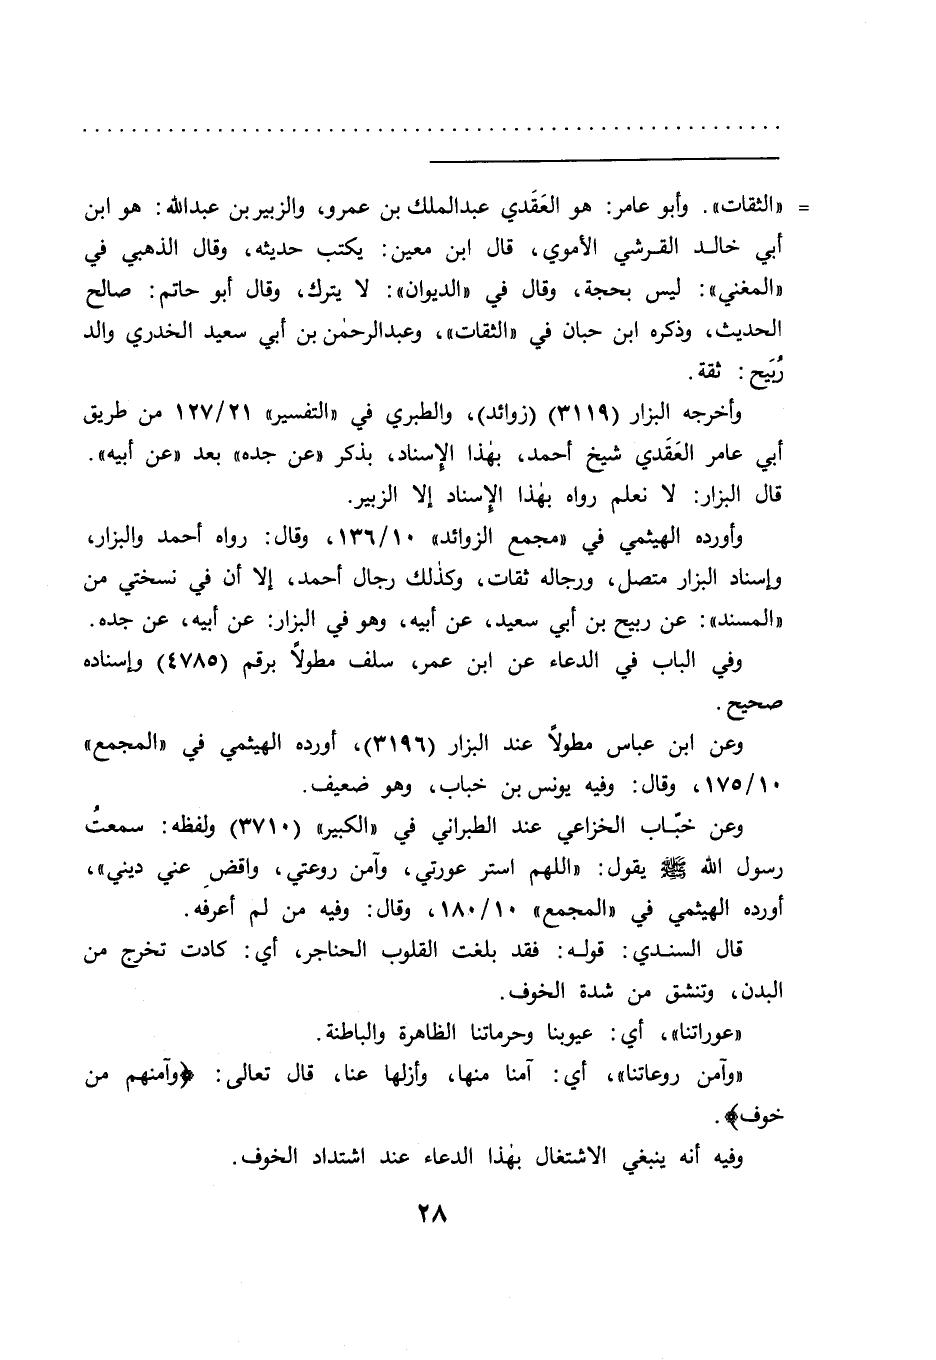 = «الثقات». وأبو عامر: هو العَقَدي عبدالملك بن عمرو، والزبير بن عبدالله: هو ابن
أبي خالد القرشي الأموي، قال ابن معين: يكتب حديثه، وقال الذهبي في
«المغني»: ليس بحجة، وقال في «الديوان»: لا يترك، وقال أبو حاتم: صالح
الحديث، وذكره ابن حبان في «الثقات»، وعبدالرحمٰن بن أبي سعيد الخدري والد
رُبَيح: ثقة.
وأخرجه البزار (٣١١٩) (زوائد)، والطبري في «التفسير» ١٢٧/٢١ من طريق
أبي عامر العَقَدي شيخ أحمد، بهٰذا الإِسناد، بذكر «عن جده» بعد «عن أبيه».
قال البزار: لا نعلم رواه بهٰذا الإِسناد إلا الزبير.
وأورده الهيثمي في «مجمع الزوائد» ١٣٦/١٠، وقال: رواه أحمد والبزار،
وإسناد البزار متصل، ورجاله ثقات، وكذٰلك رجال أحمد، إلا أن في نسختي من
«المسند»: عن ربيح بن أبي سعيد، عن أبيه، وهو في البزار: عن أبيه، عن جده.
وفي الباب في الدعاء عن ابن عمر، سلف مطولاً برقم (٤٧٨٥) وإسناده
صحيح.
وعن ابن عباس مطولاً عند البزار (٣١٩٦)، أورده الهيثمي في «المجمع»
١٧٥/١٠، وقال: وفيه يونس بن خباب، وهو ضعيف.
وعن خبّاب الخزاعي عند الطبراني في «الكبير» (٣٧١٠) ولفظه: سمعتُ
رسول الله ﷺ يقول: «اللهم استر عورتي، وآمن روعتي، واقضِ عني ديني»،
أورده الهيثمي في «المجمع» ١٨٠/١٠، وقال: وفيه من لم أعرفه.
قال السندي: قوله: فقد بلغت القلوب الحناجر، أي: كادت تخرج من
البدن، وتنشق من شدة الخوف.
«عوراتنا»، أي: عيوبنا وحرماتنا الظاهرة والباطنة.
«وآمن روعاتنا»، أي: آمنا منها، وأزلها عنا، قال تعالى: ﴿وآمنهم من
خوف﴾.
وفيه أنه ينبغي الاشتغال بهٰذا الدعاء عند اشتداد الخوف.
٢٨